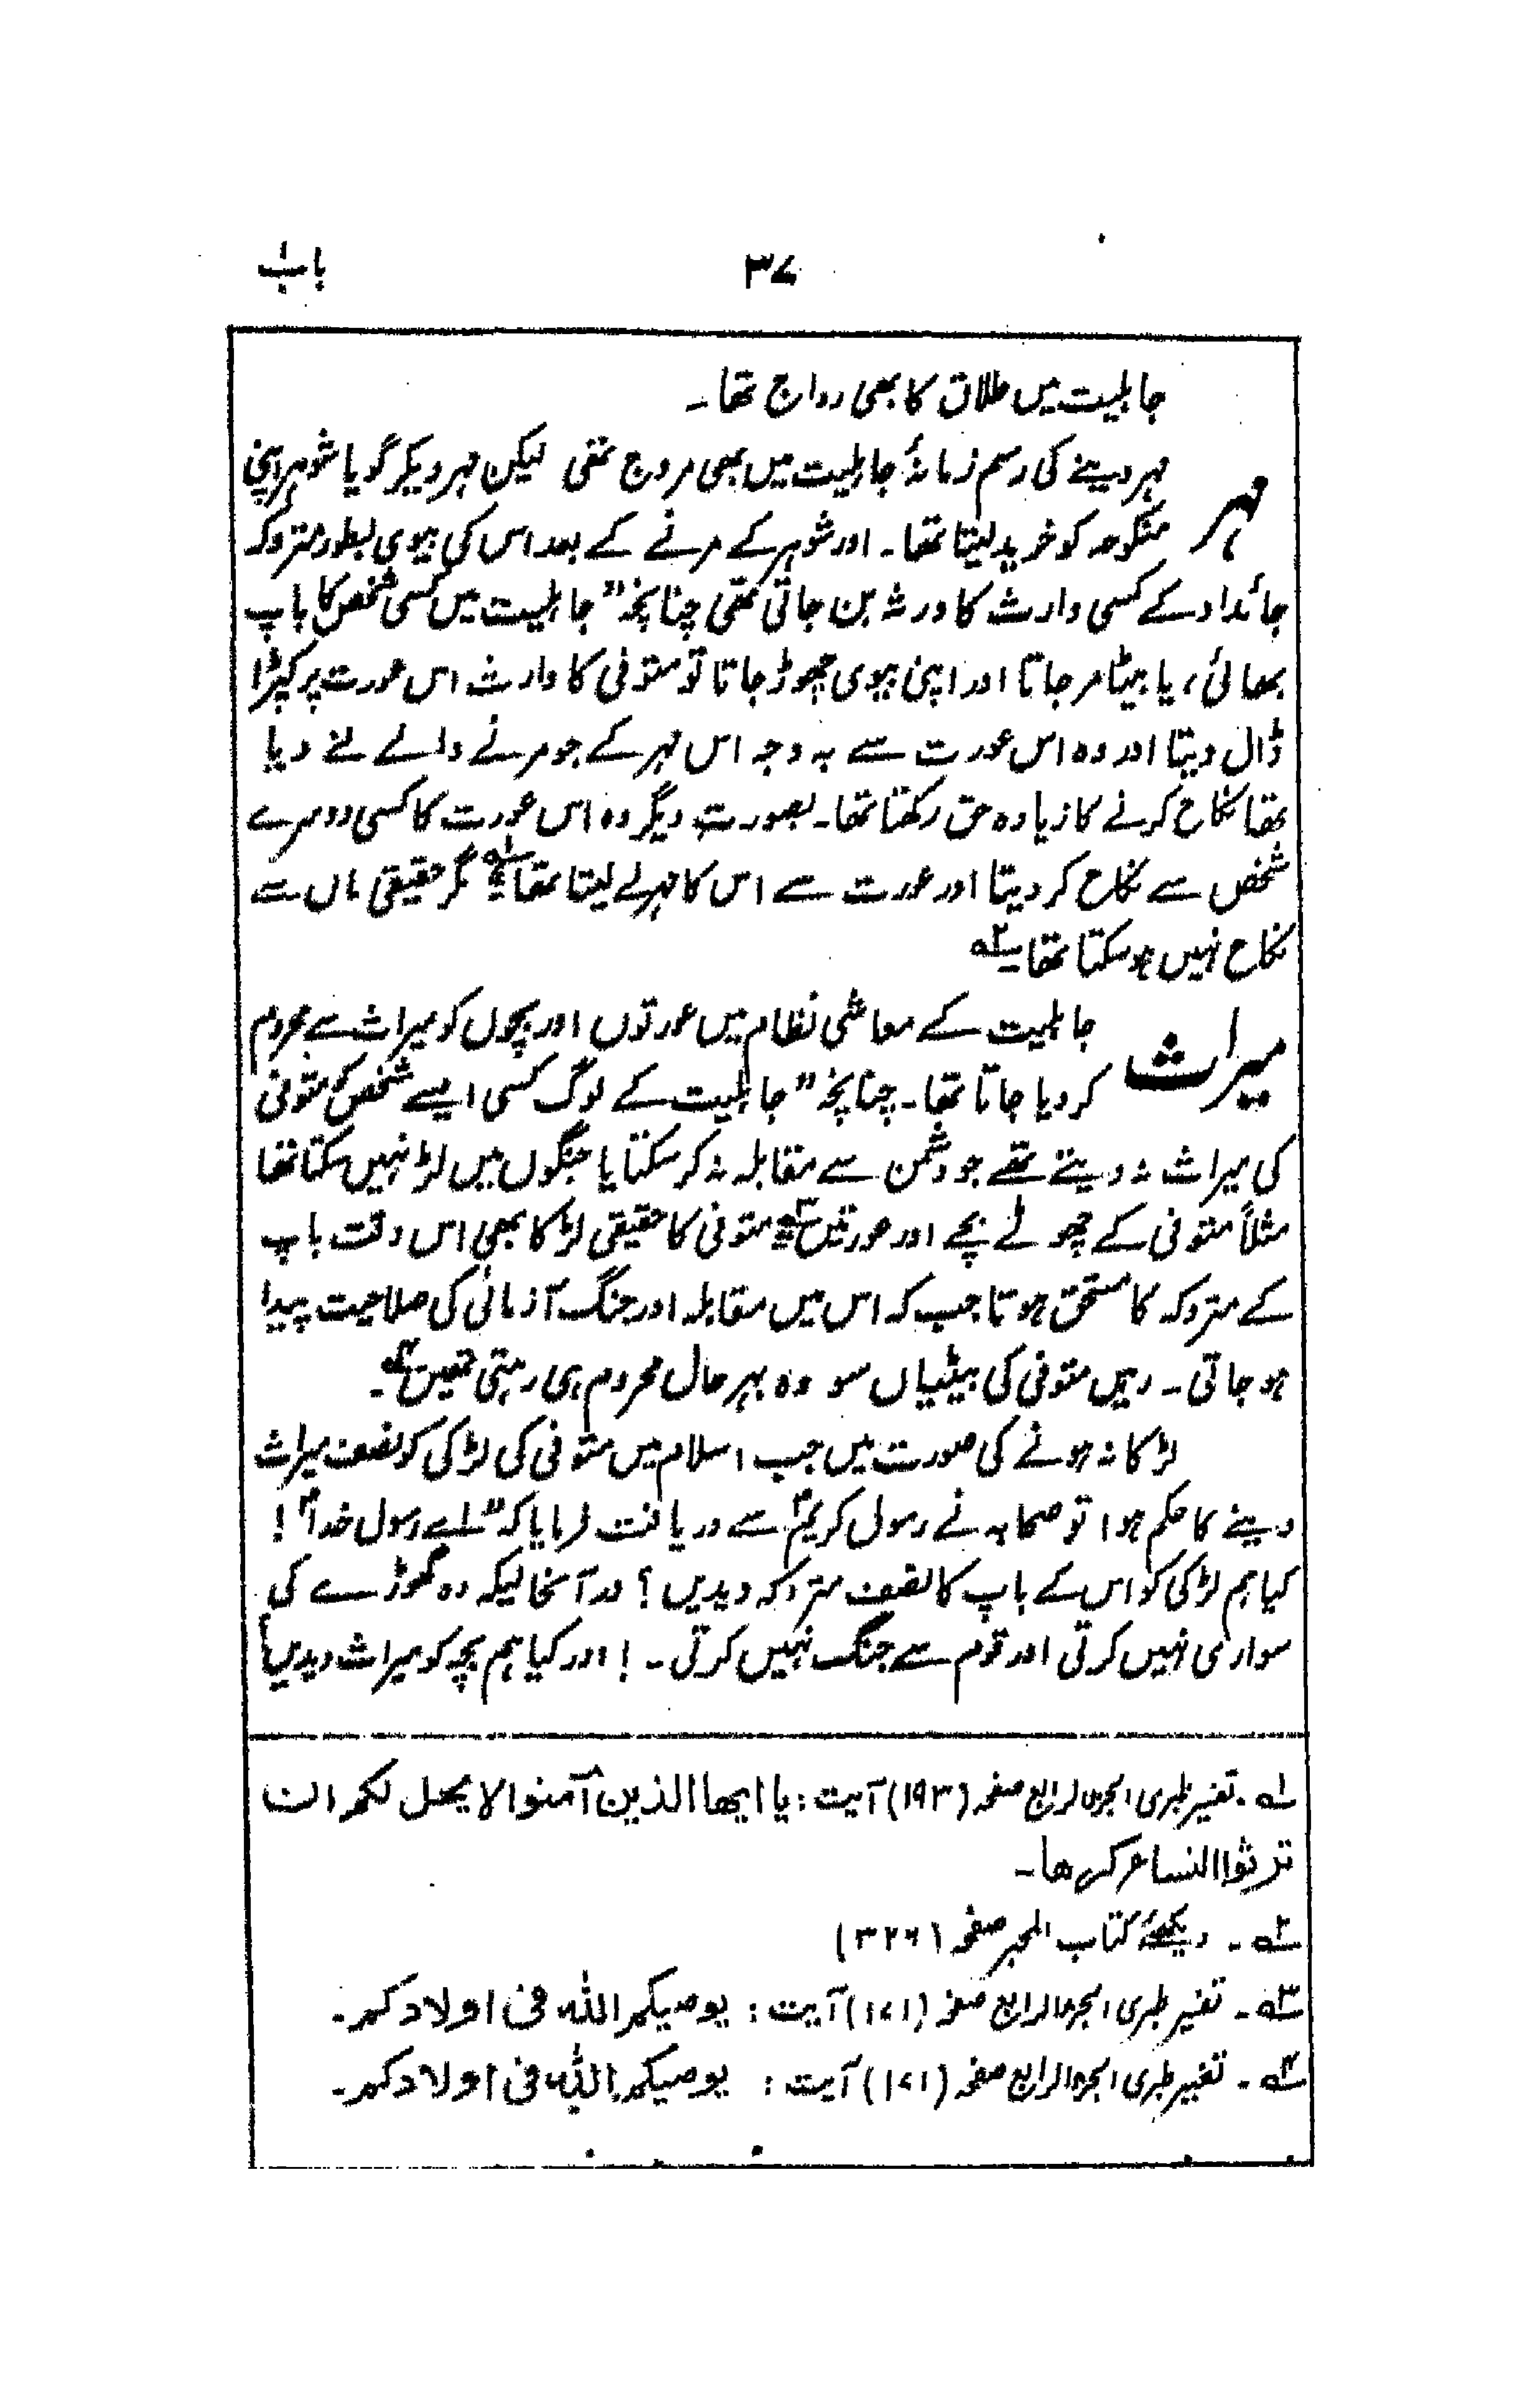 ۳۷ باب۱
جاہلیت میں طلاق کا بھی رواج تھا۔
مہر
مہر دینے کی رسم زمانۂ جاہلیت میں بھی مروج تھی لیکن مہر دیکر گویا شوہر اپنی
منکوحہ کو خرید لیتا تھا۔ اور شوہر کے مرنے کے بعد اس کی بیوی بطور متروکہ
جائداد کے کسی وارث کا ورثہ بن جاتی تھی چنانچہ "جاہلیت میں کسی شخص کا باپ
بھائی، یا بیٹا مر جاتا اور اپنی بیوی چھوڑ جاتا تو متوفی کا وارث اس عورت پر کپڑا
ڈال دیتا اور وہ اس عورت سے بہ وجہ اس مہر کے جو مرنے والے نے دیا
تھا نکاح کرنے کا زیادہ حق رکھتا تھا۔ بصورت دیگر وہ اس عورت کا کسی دوسرے
شخص سے نکاح کر دیتا اور عورت سے اس کا مہر لے لیتا تھا"۱؎ مگر حقیقی ماں سے
نکاح نہیں ہو سکتا تھا۔۲؎
میراث
جاہلیت کے معاشی نظام میں عورتوں اور بچوں کو میراث سے محروم
کر دیا جاتا تھا۔ چنانچہ "جاہلیت کے لوگ کسی ایسے شخص کو متوفی
کی میراث نہ دیتے تھے جو دشمن سے مقابلہ نہ کر سکتا یا جنگوں میں لڑ نہیں سکتا تھا
مثلاً متوفی کے چھوٹے بچے اور عورتیں"۳؎ متوفی کا حقیقی لڑکا بھی اس وقت باپ
کے متروکہ کا مستحق ہوتا جب کہ اس میں مقابلہ اور جنگ آزمائی کی صلاحیت پیدا
ہو جاتی۔ رہیں متوفی کی بیٹیاں سو وہ بہر حال محروم ہی رہتی تھیں۴؎۔
لڑکا نہ ہونے کی صورت میں جب اسلام میں متوفی کی لڑکی کو نصف میراث
دینے کا حکم ہوا تو صحابہ نے رسول کریمؐ سے دریافت فرمایا کہ "اے رسول خداؐ!
کیا ہم لڑکی کو اس کے باپ کا نصف متروکہ دیدیں؟ درآنحالیکہ وہ گھوڑے کی
سواری نہیں کرتی اور قوم سے جنگ نہیں کرتی۔! اور کیا ہم بچہ کو میراث دیدیں
۱؎۔ تفسیر طبری الجزء الرابع صفحہ (۱۹۳) آیت: یا ایھا الذین آمنوا لا یحل لکم ان
ترثوا النساء کرھا۔
۲؎۔ دیکھئے کتاب المحبر صفحہ (۳۲۶)
۳؎۔ تفسیر طبری الجزء الرابع صفحہ (۱۷۱) آیت: یوصیکم اللہ فی اولادکم۔
۴؎۔ تفسیر طبری الجزء الرابع صفحہ (۱۷۱) آیت: یوصیکم اللہ فی اولادکم۔